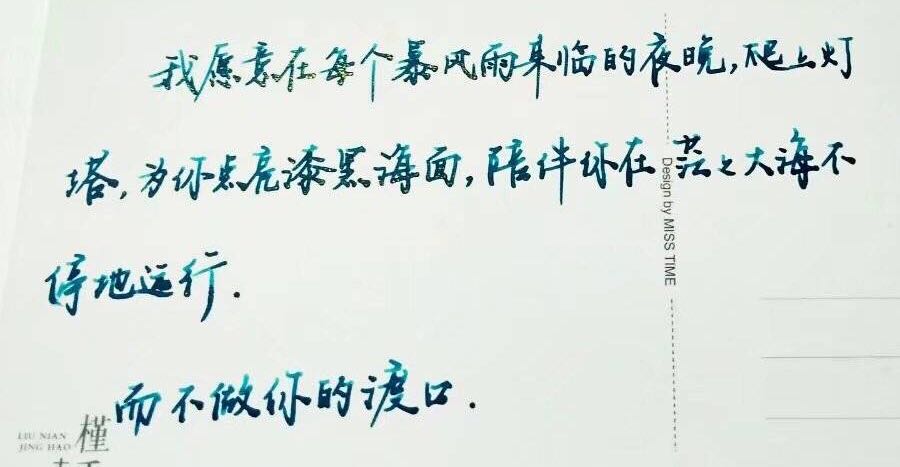 我愿意在每个暴风雨来临的夜晚,爬上灯
塔,为你点亮漆黑海面,陪伴你在茫々大海不
停地运行.
而不做你的渡口.
Design by MISS TIME
LIU NIAN
JING HAO
槿